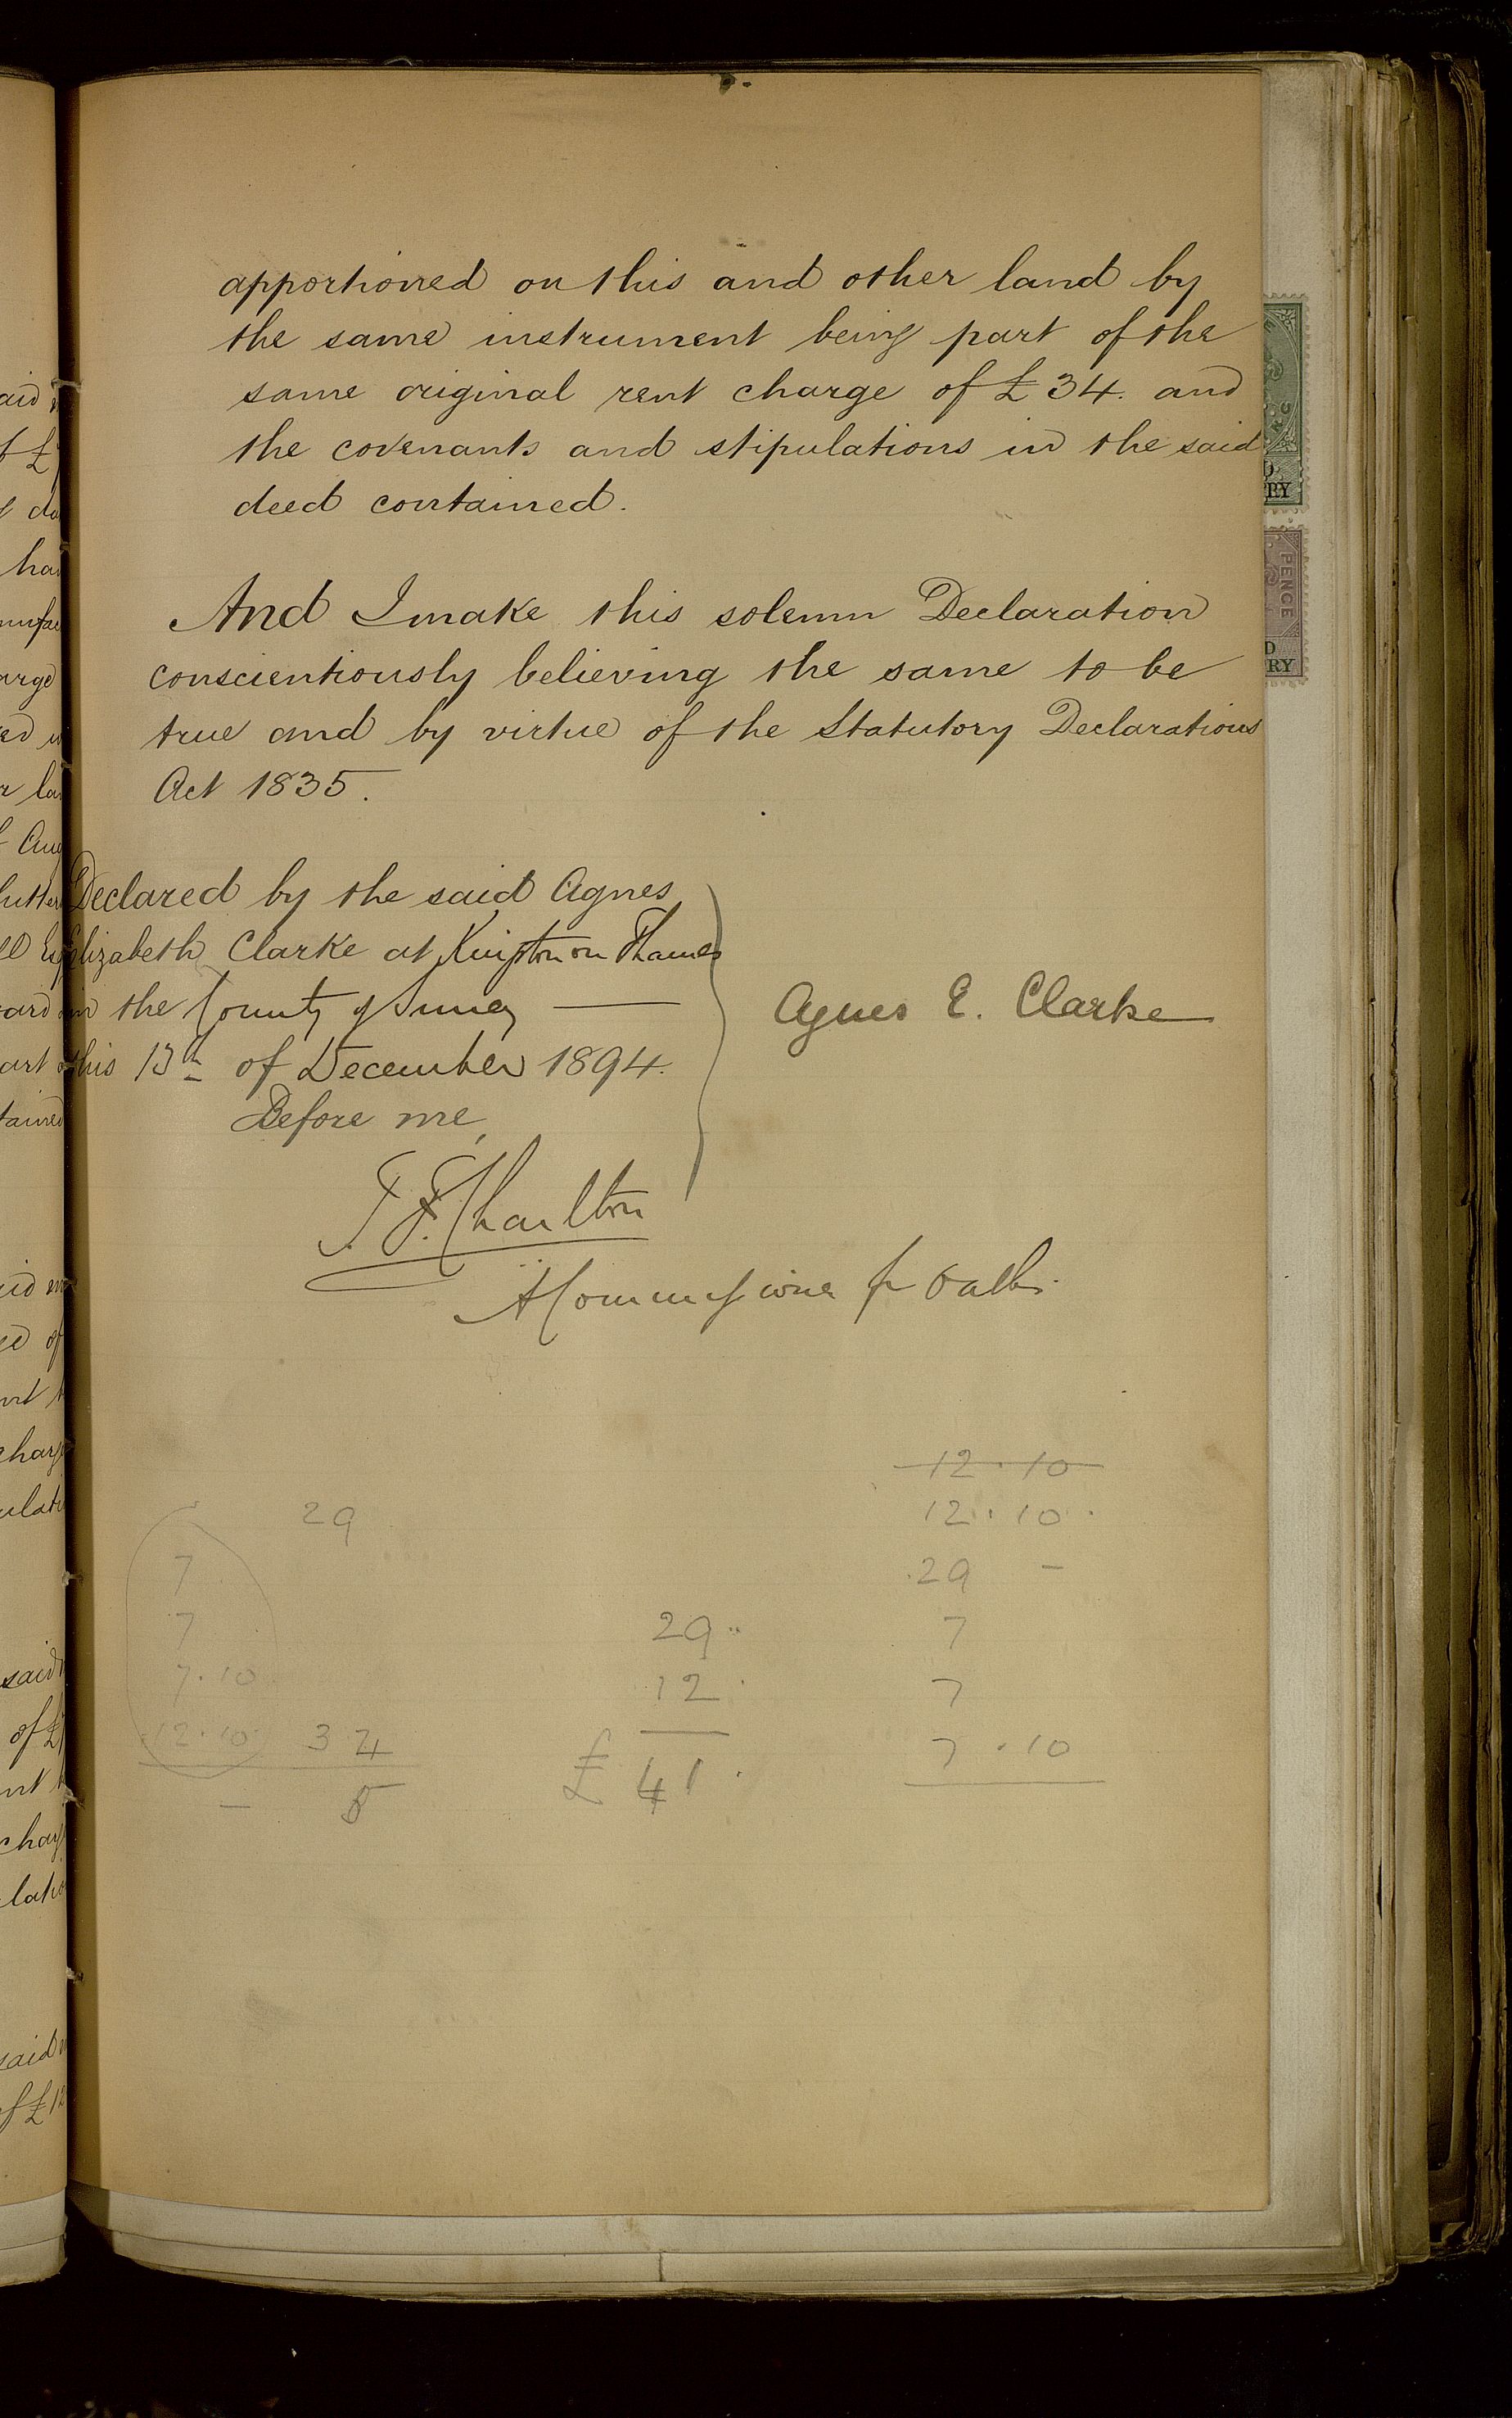 apportioned on this and other land by
the same instrument being part of the
same original rent charge of £34. and
the covenants and stipulations in the said
deed contained.
And I make this solemn Declaration
conscientiously believing the same to be
true and by virtue of the Statutory Declarations
Act 1835.
Declared by the said Agnes
Elizabeth Clarke at Kingston on Thames
in the County of Surrey
this 13th of December 1894.
Before me,
Agnes E. Clarke
J. F. Charlton
A Commissioner for Oaths.
12.10
12.10.
29 -
7
7
7.10
29
12
£41.
29
7
7
7.10
12.10 34
- 5
PENCE